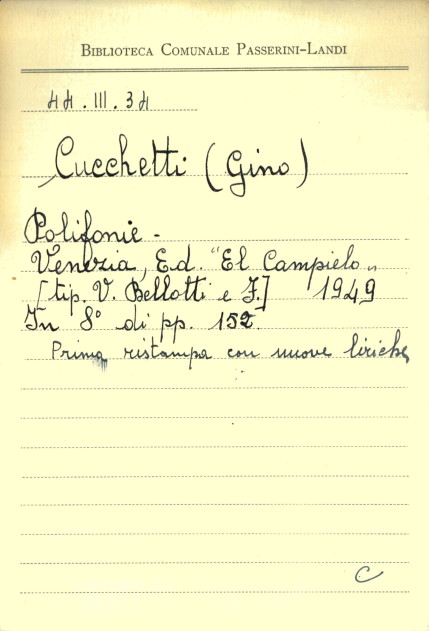 BIBLIOTECA COMUNALE PASSERINI-LANDI
44.III.34
Cucchetti (Gino)
Polifonie -
Venezia, Ed. "El Campielo„
[tip. V. Bellotti e F.] 1949
In 8° di pp. 152.
Prima ristampa con nuove liriche
C